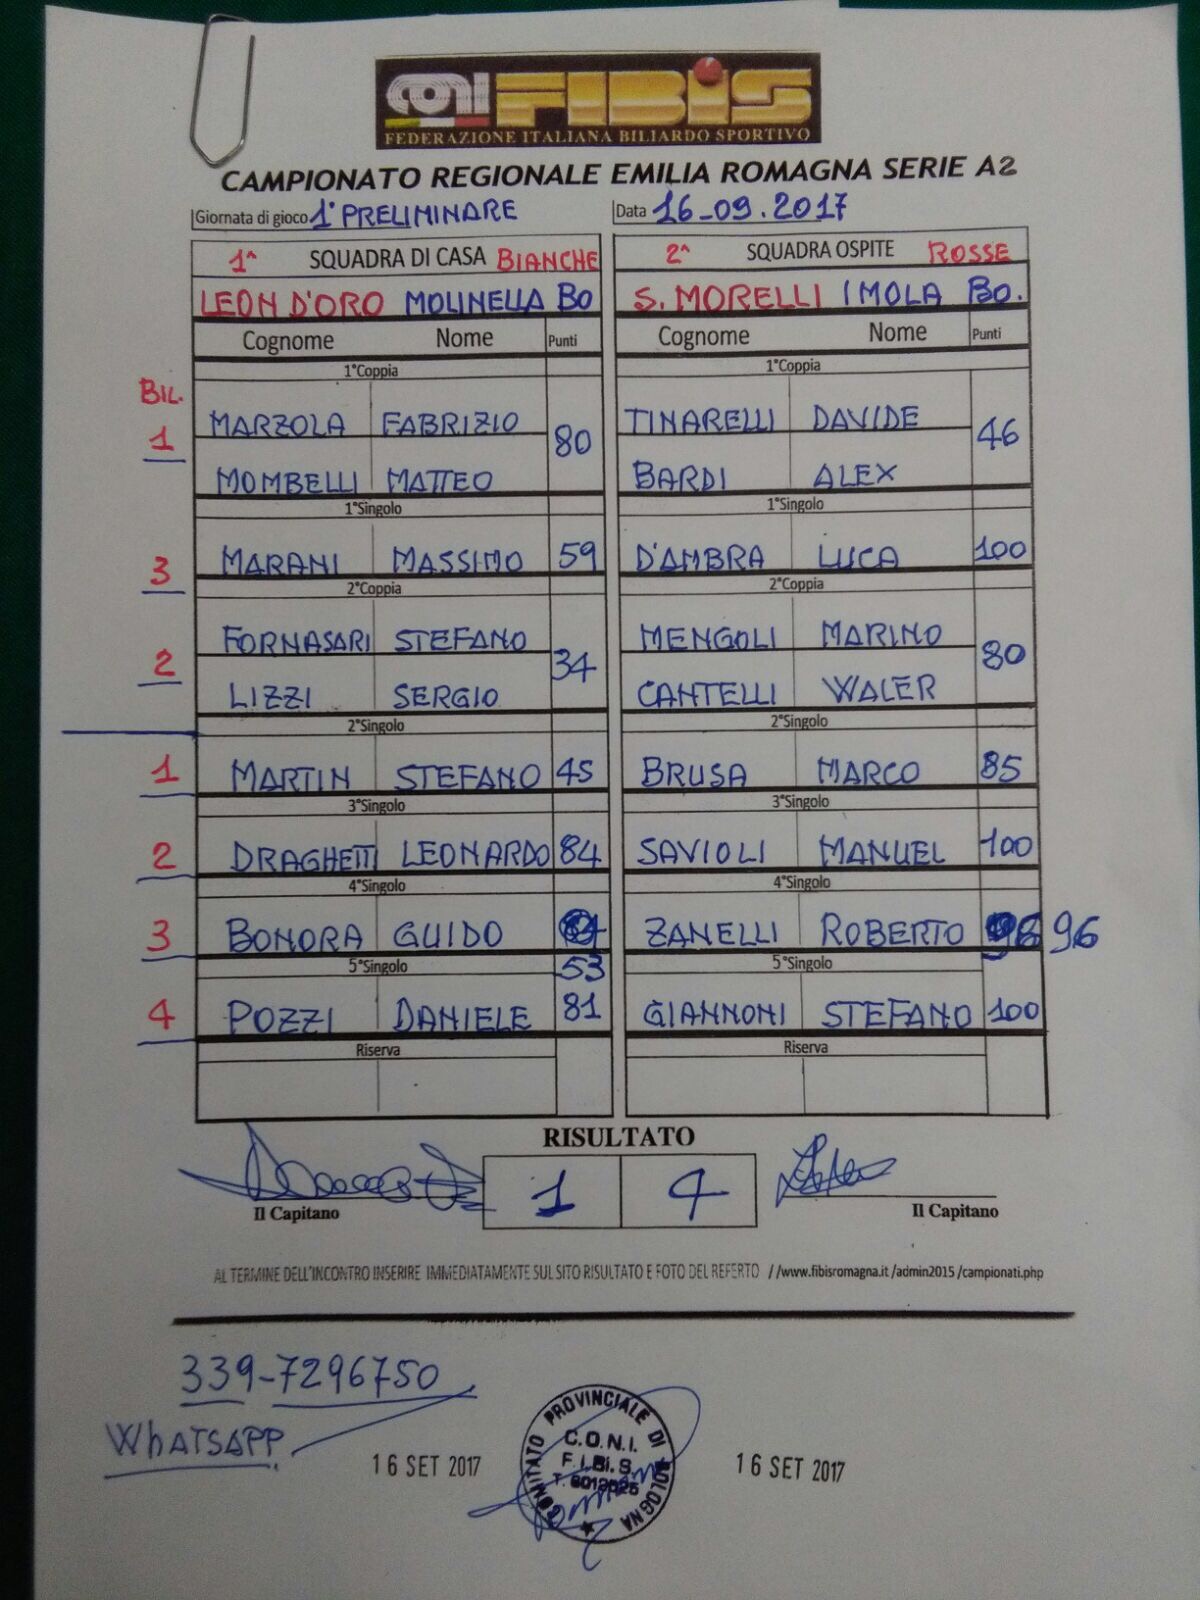 CONI FIBiS
FEDERAZIONE ITALIANA BILIARDO SPORTIVO
CAMPIONATO REGIONALE EMILIA ROMAGNA SERIE A2
Giornata di gioco 1ª PRELIMINARE Data 16-09.2017
1^ SQUADRA DI CASA BIANCHE 2^ SQUADRA OSPITE ROSSE
LEON D'ORO MOLINELLA BO S. MORELLI IMOLA BO.
Cognome Nome Punti Cognome Nome Punti
1°Coppia 1°Coppia
BIL.
1 MARZOLA FABRIZIO 80 TINARELLI DAVIDE 46
MOMBELLI MATTEO BARDI ALEX
1°Singolo 1°Singolo
3 MARANI MASSIMO 59 D'AMBRA LUCA 100
2°Coppia 2°Coppia
FORNASARI STEFANO MENGOLI MARINO
2 LIZZI SERGIO 34 CANTELLI WALER 80
2°Singolo 2°Singolo
1 MARTIN STEFANO 45 BRUSA MARCO 85
3°Singolo 3°Singolo
2 DRAGHETTI LEONARDO 84 SAVIOLI MANUEL 100
4°Singolo 4°Singolo
3 BONORA GUIDO ZANELLI ROBERTO 96
5°Singolo 53 5°Singolo
4 POZZI DANIELE 81 GIANNONI STEFANO 100
Riserva Riserva
RISULTATO
1 4
Il Capitano Il Capitano
AL TERMINE DELL'INCONTRO INSERIRE IMMEDIATAMENTE SUL SITO RISULTATO E FOTO DEL REFERTO //www.fibisromagna.it /admin2015 /campionati.php
339-7296750
WhATSAPP
16 SET 2017 16 SET 2017
COMITATO PROVINCIALE DI BOLOGNA
C.O.N.I.
F.I.Bi.S.